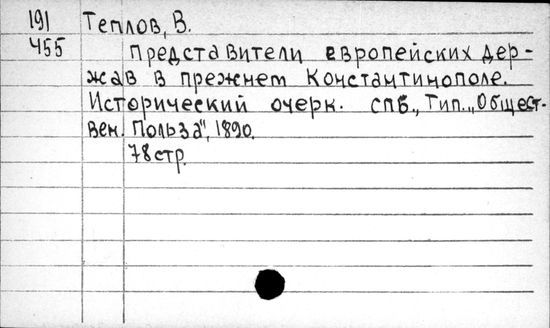 191 Теплов, В.
455 Представители европейских дер-
жав в прежнем Константинополе.
Исторический очерк. спб., Тип. „Общест-
вен. Польза", 1890.
78 стр.